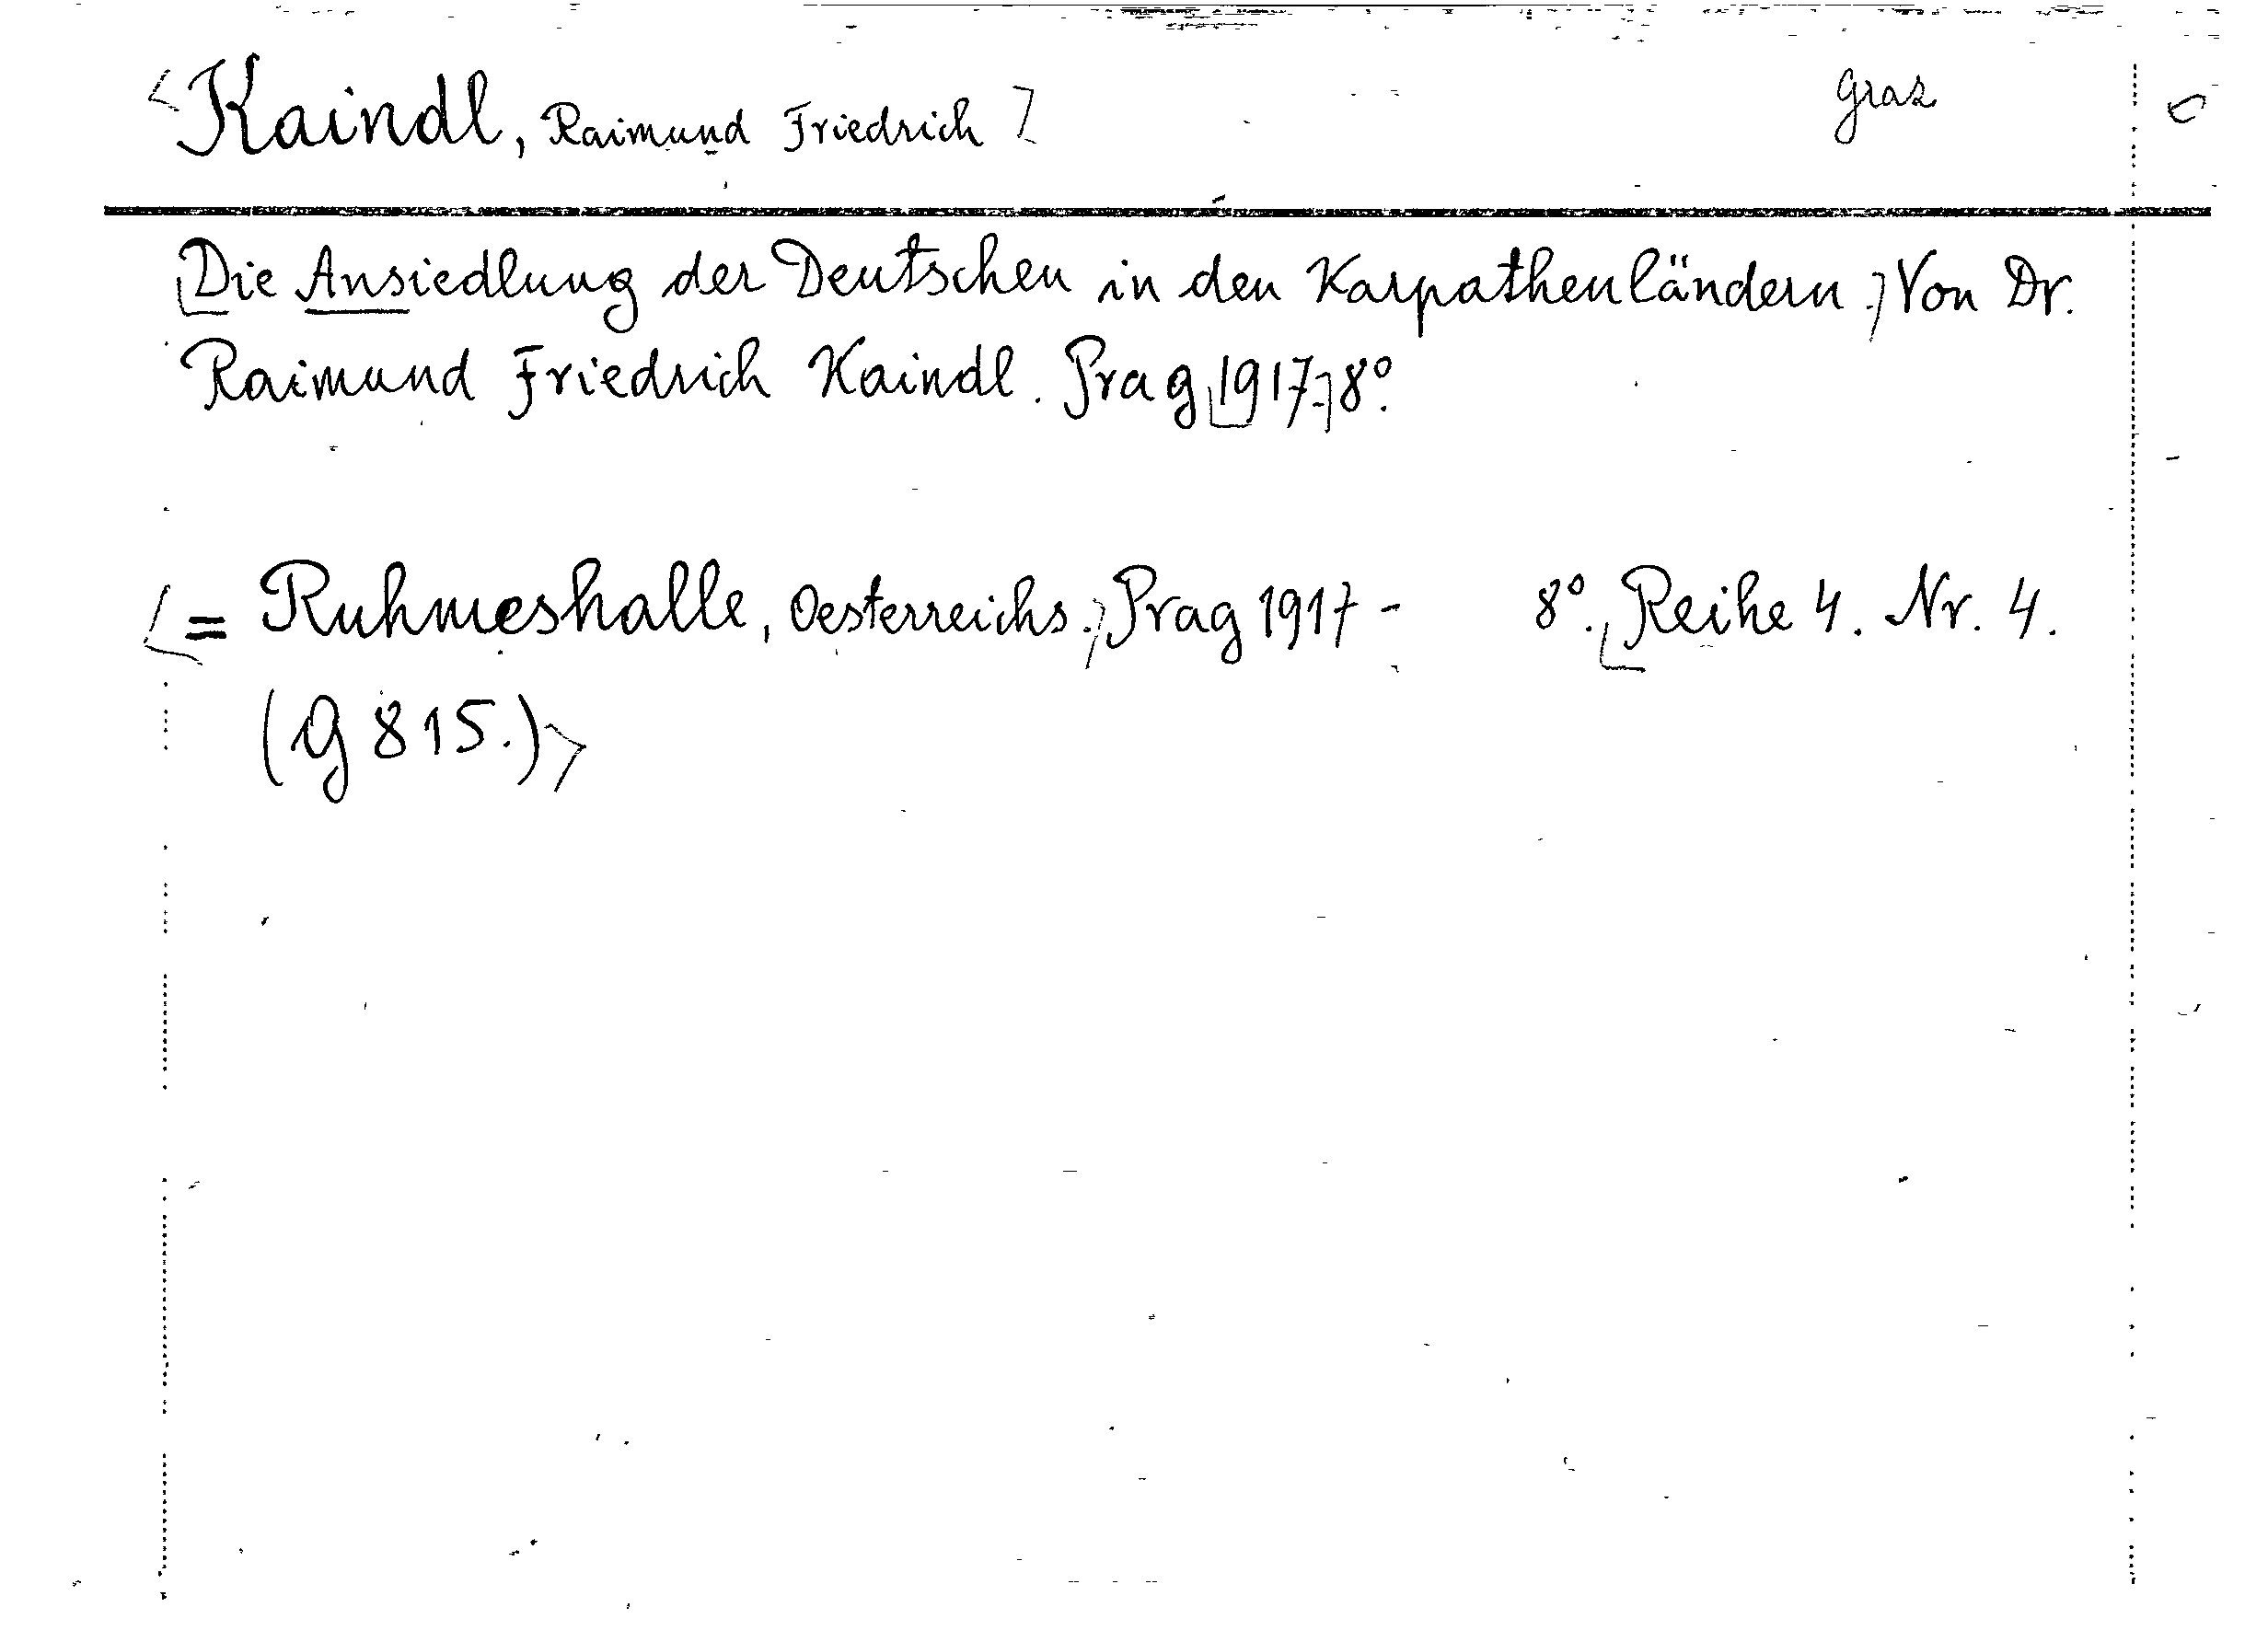 Kaindl, Raimund Friedrich] Graz
[Die Ansiedlung der Deutschen in den Karpathenländern.] Von Dr.
Raimund Friedrich Kaindl. Prag [1917.] 8°.
[= Ruhmeshalle, Oesterreichs.] Prag 1917- 8°. [Reihe 4. Nr. 4.
(G 815.)]